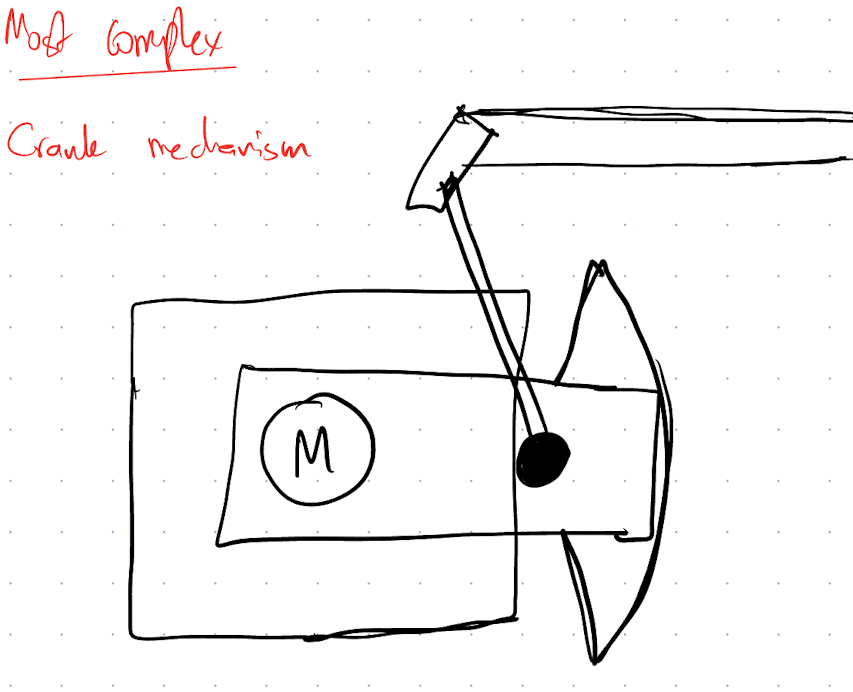 Most complex
Crank mechanism
M